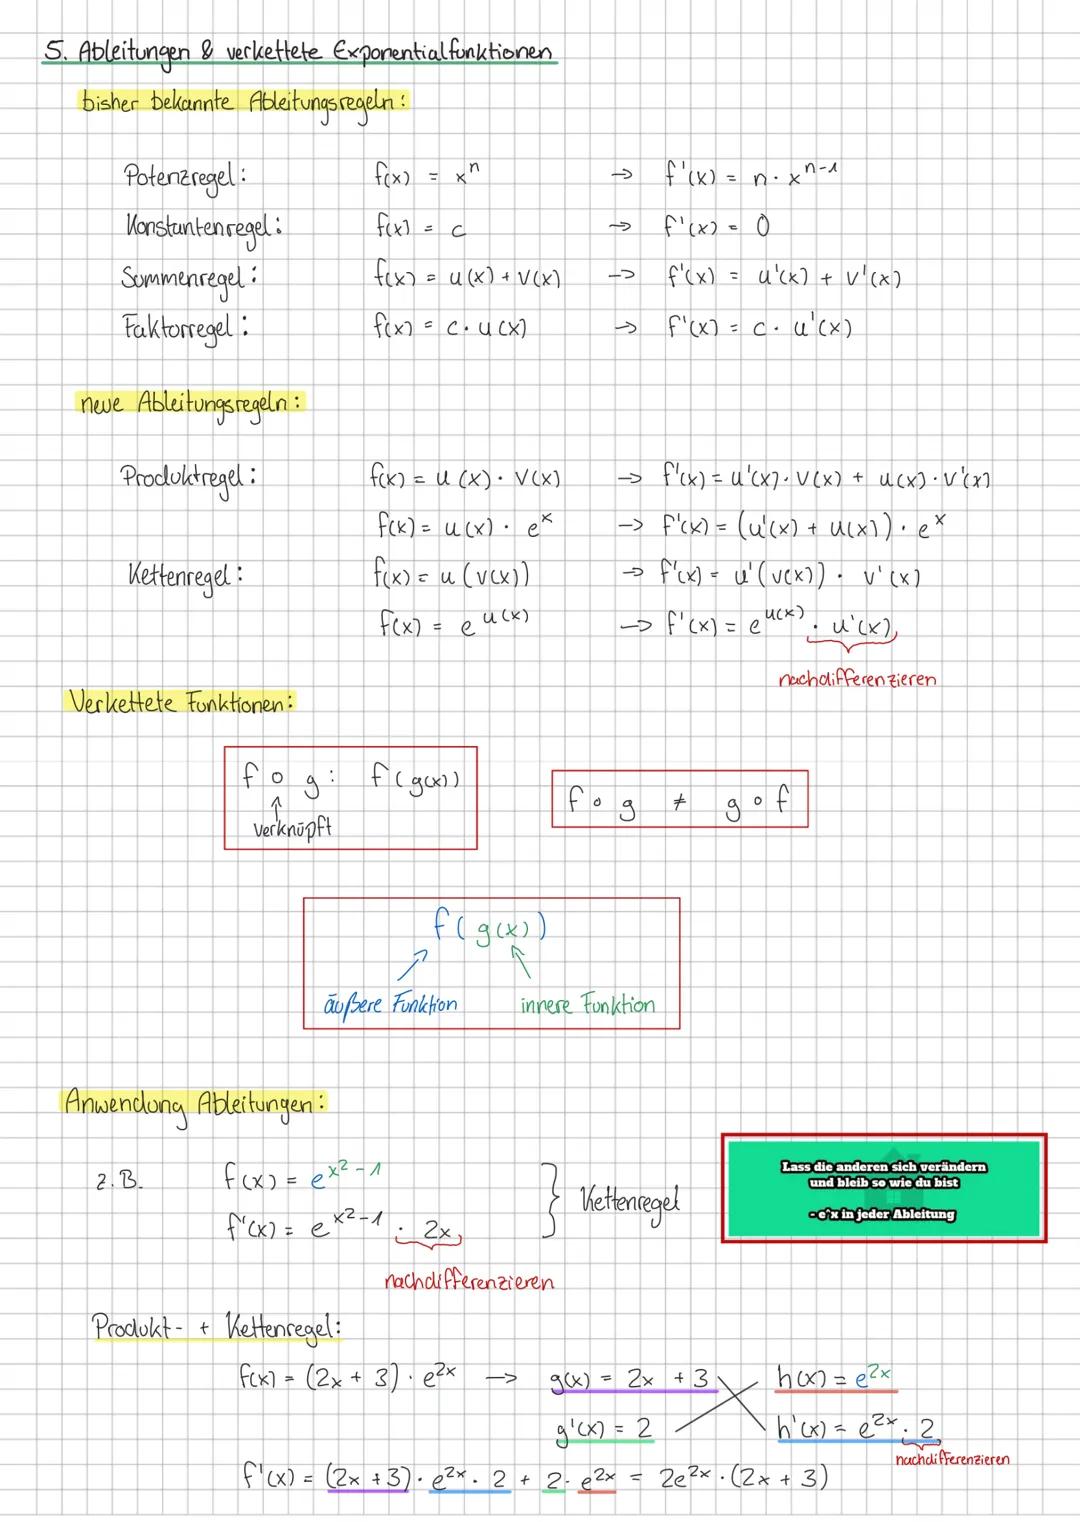 5. Ableitungen & verkettete Exponentialfunktionen
bisher bekannte Ableitungsregeln:
Potenzregel: f(x) = x^n → f'(x) = n · x^(n-1)
Konstantenregel: f(x) = c → f'(x) = 0
Summenregel: f(x) = u(x) + v(x) → f'(x) = u'(x) + v'(x)
Faktorregel: f(x) = c · u(x) → f'(x) = c · u'(x)
neue Ableitungsregeln:
Produktregel: f(x) = u(x) · v(x) → f'(x) = u'(x) · v(x) + u(x) · v'(x)
f(x) = u(x) · e^x → f'(x) = (u'(x) + u(x)) · e^x
Kettenregel: f(x) = u(v(x)) → f'(x) = u'(v(x)) · v'(x)
f(x) = e^u(x) → f'(x) = e^u(x) · u'(x)
nachdifferenzieren
Verkettete Funktionen:
f ∘ g: f(g(x))
verknüpft
f ∘ g ≠ g ∘ f
f(g(x))
äußere Funktion innere Funktion
Anwendung Ableitungen:
z.B. f(x) = e^(x²-1)
f'(x) = e^(x²-1) · 2x
} Kettenregel
nachdifferenzieren
Lass die anderen sich verändern
und bleib so wie du bist
- e^x in jeder Ableitung
Produkt- + Kettenregel:
f(x) = (2x + 3) · e^2x → g(x) = 2x + 3 h(x) = e^2x
g'(x) = 2 h'(x) = e^2x · 2
nachdifferenzieren
f'(x) = (2x + 3) · e^2x · 2 + 2 · e^2x = 2e^2x · (2x + 3)